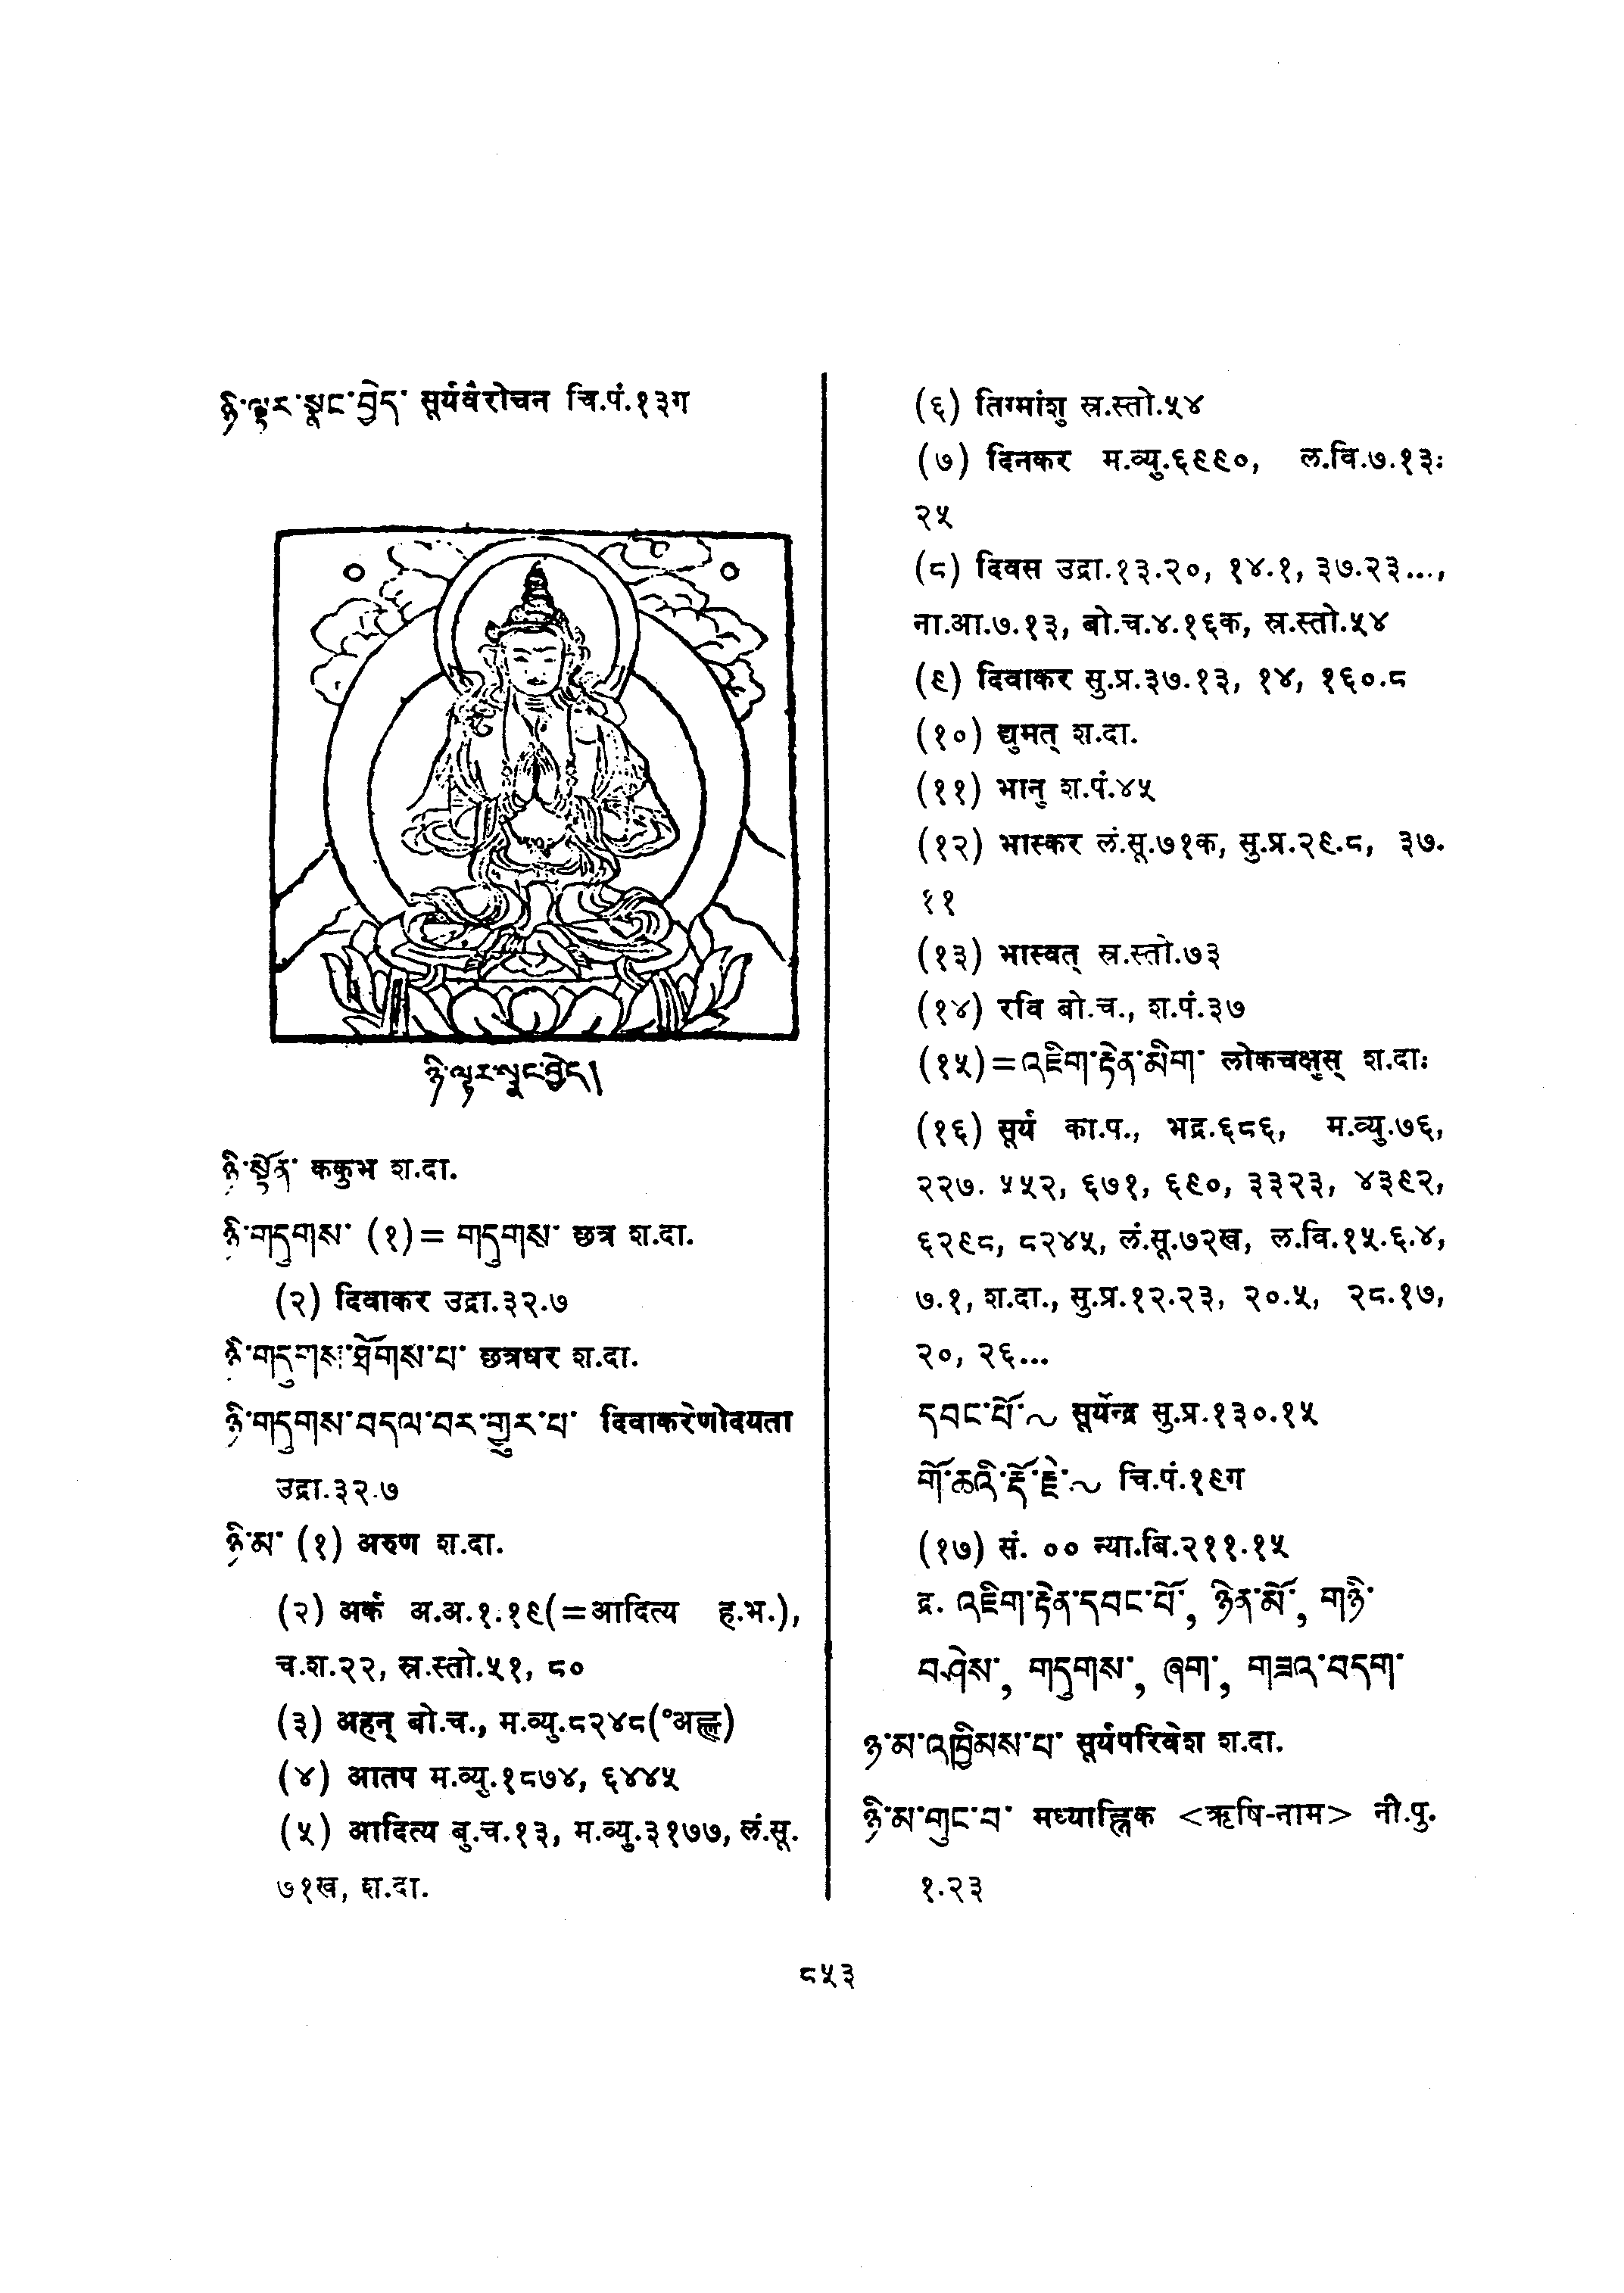 ཉི་ལྟར་སྣང་བྱེད་ सूर्यवैरोचन चि.पं.१३ग
ཉི་ལྟར་སྣང་བྱེད།
ཉི་སྟོན་ ककुभ श.दा.
ཉི་གདུགས་ (१)= གདུགས་ छत्र श.दा.
(२) दिवाकर उद्रा.३२.७
ཉི་གདུགས་ཐོགས་པ་ छत्रधर श.दा.
ཉི་གདུགས་བདལ་བར་གྱུར་པ་ दिवाकरेणोदयता
उद्रा.३२.७
ཉི་མ་ (१) अरुण श.दा.
(२) अर्क अ.अ.१.१९(=आदित्य ह.भ.),
च.श.२२, स्र.स्तो.५१, ८०
(३) अहन् बो.च., म.व्यु.८२४८(°अह्ण)
(४) आतप म.व्यु.१८७४, ६४४५
(५) आदित्य बु.च.१३, म.व्यु.३१७७, लं.सू.
७१ख, श.दा.
(६) तिग्मांशु स्र.स्तो.५४
(७) दिनकर म.व्यु.६९९०, ल.वि.७.१३:
२५
(८) दिवस उद्रा.१३.२०, १४.१, ३७.२३...,
ना.आ.७.१३, बो.च.४.१६क, स्र.स्तो.५४
(९) दिवाकर सु.प्र.३७.१३, १४, १६०.८
(१०) द्युमत् श.दा.
(११) भानु श.पं.४५
(१२) भास्कर लं.सू.७१क, सु.प्र.२९.८, ३७.
११
(१३) भास्वत् स्र.स्तो.७३
(१४) रवि बो.च., श.पं.३७
(१५)=འཇིག་རྟེན་མིག་ लोकचक्षुस् श.दा:
(१६) सूर्य का.प., भद्र.६८६, म.व्यु.७६,
२२७. ५५२, ६७१, ६९०, ३३२३, ४३९२,
६२९८, ८२४५, लं.सू.७२ख, ल.वि.१५.६.४,
७.१, श.दा., सु.प्र.१२.२३, २०.५, २८.१७,
२०, २६...
དབང་པོ་~ सूर्येन्द्र सु.प्र.१३०.१५
གོ་ཆའི་རྡོ་རྗེ་~ चि.पं.१९ग
(१७) सं. ०० न्या.बि.२११.१५
द्र. འཇིག་རྟེན་དབང་པོ་, ཉིན་མོ་, གཉི་
བཤེས་, གདུགས་, ཞག་, གཟའ་བདག་
ཉི་མ་འཁྱིམས་པ་ सूर्यपरिवेश श.दा.
ཉི་མ་གུང་བ་ मध्याह्निक <ऋषि-नाम> नी.पु.
१.२३
८५३